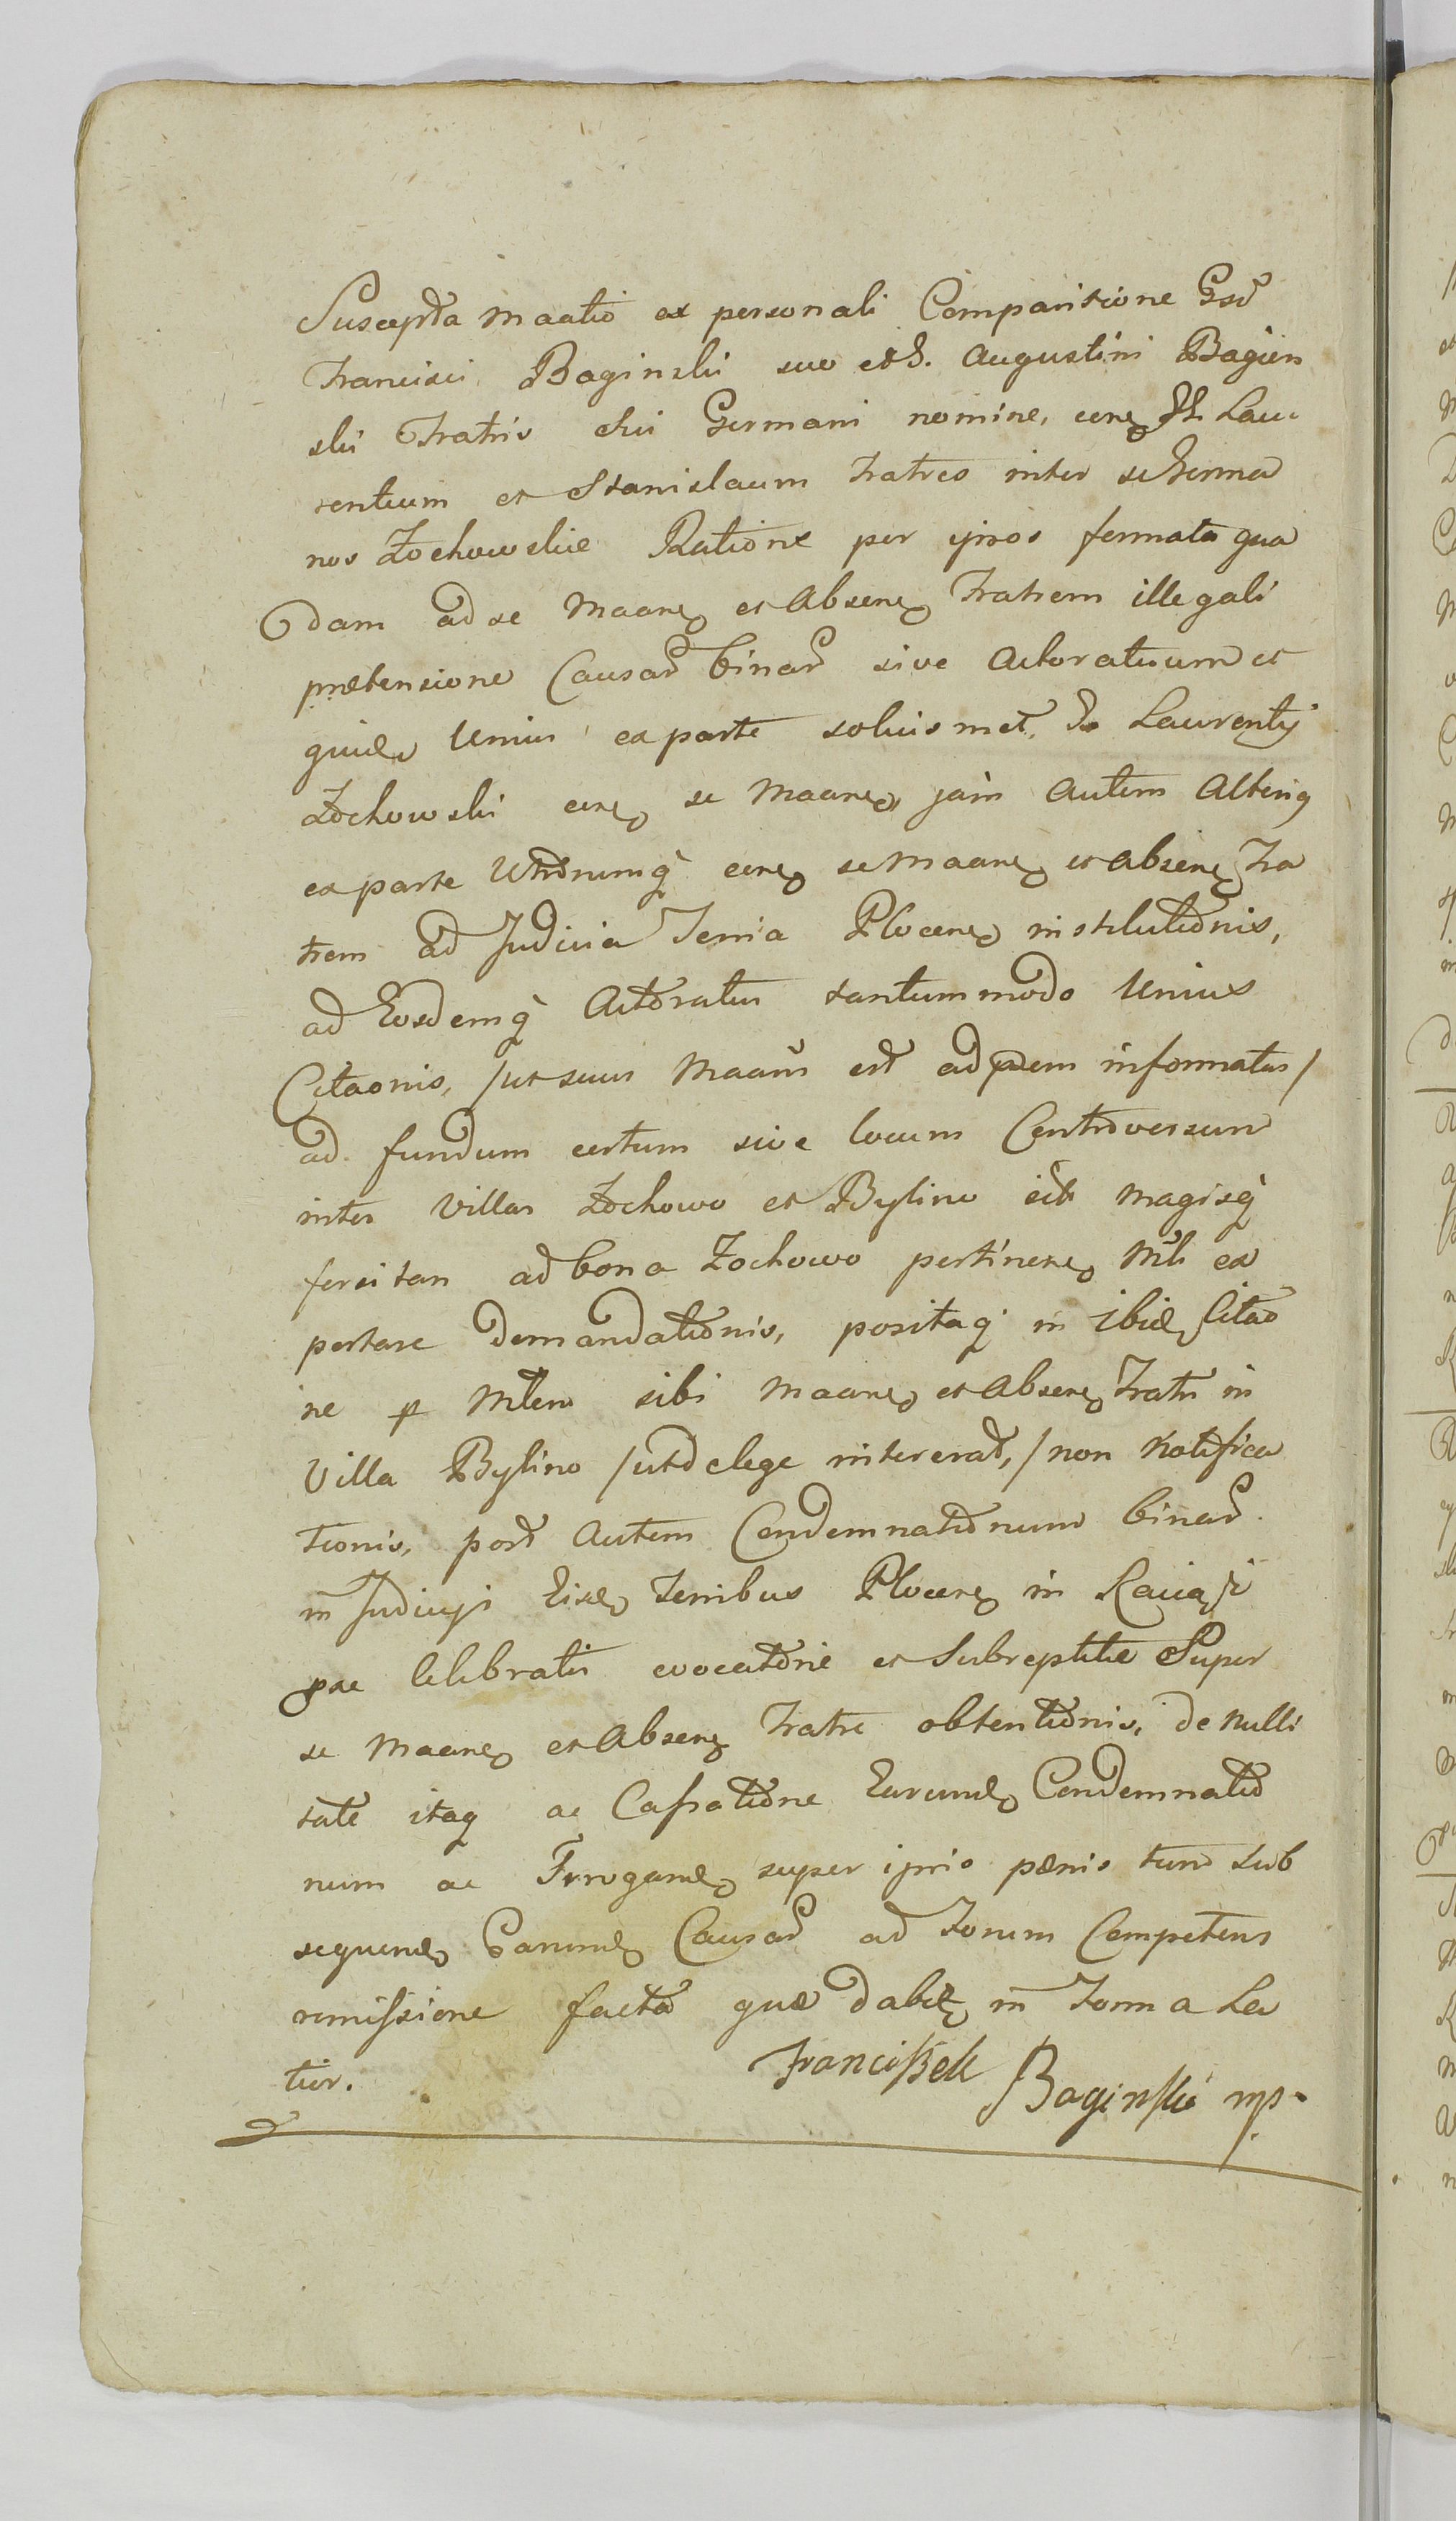 Suscepta Maatio ex personali Comparitione Gsd
Francisci Baginski suo et G. Augustini Bagien
ski Fratris Sui Germani nomine, cone Gs. Lau
rentium et Stanislaum Fratres inter se Germa
nos Zochowskie Ratione per ipsos formata qua
dam ad se Maane et Absene Fratrem illegali
prætensione Causar binar sive Actoratuum et
quide Unius ex parte soliusmet Gs Laurentij
Zochowski cone se Maane, jam Autem Alterig
ex parte Utrorumq cone se Maane et absene Fra
trem ad Judicia Terria Plocene institutionis,
ad Eosdemq Actoratus tantummodo Unius
Citaonis, /ut suus Maans est ad psem informatus/
ad fundum certum sive locum Controversum
inter Villas Zochowo et Bylino seu magisq
forsitan ad bona Zochowo pertinene Mli ex
portare demandationis, positaq in ibide Citao
ne p Mlem sibi Maane et Absene Fratri in
Villa Bylino /ut de lege intererat,/ non Notifica
tionis, post Autem Condemnationum binar
in Judicijs Eisde Terribus Plocene in Raciąż
pae Celebratis evocatorie et Subreptitie Super
se Maane et Absene Fratre obtentionis, de Nulli
tate itaq ac Cassatione Earunde Condemnatio
num ac Irrogane super ipsis pænis tum Sub
sequene Earunde Causar ad Forum Competens
remissione facta quæ dabit in Forma La
tior.
Franciszek Baginski mp.